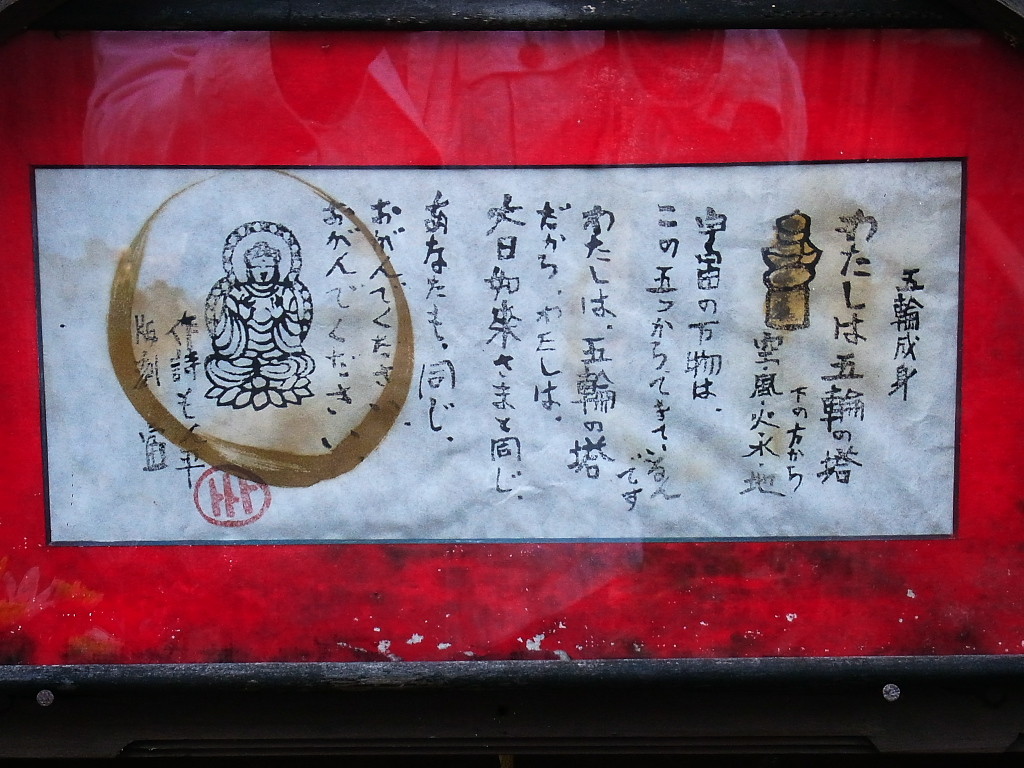 五輪成身
わたしは五輪の塔
下の方から
空・風・火・水・地
宇宙の万物は、
この五つからできているん
です
わたしは、五輪の塔
だから、わたしは、
大日如来さまと同じ、
あなたも、同じ、
おがんでください、
おがんでください、
作詩
版刻